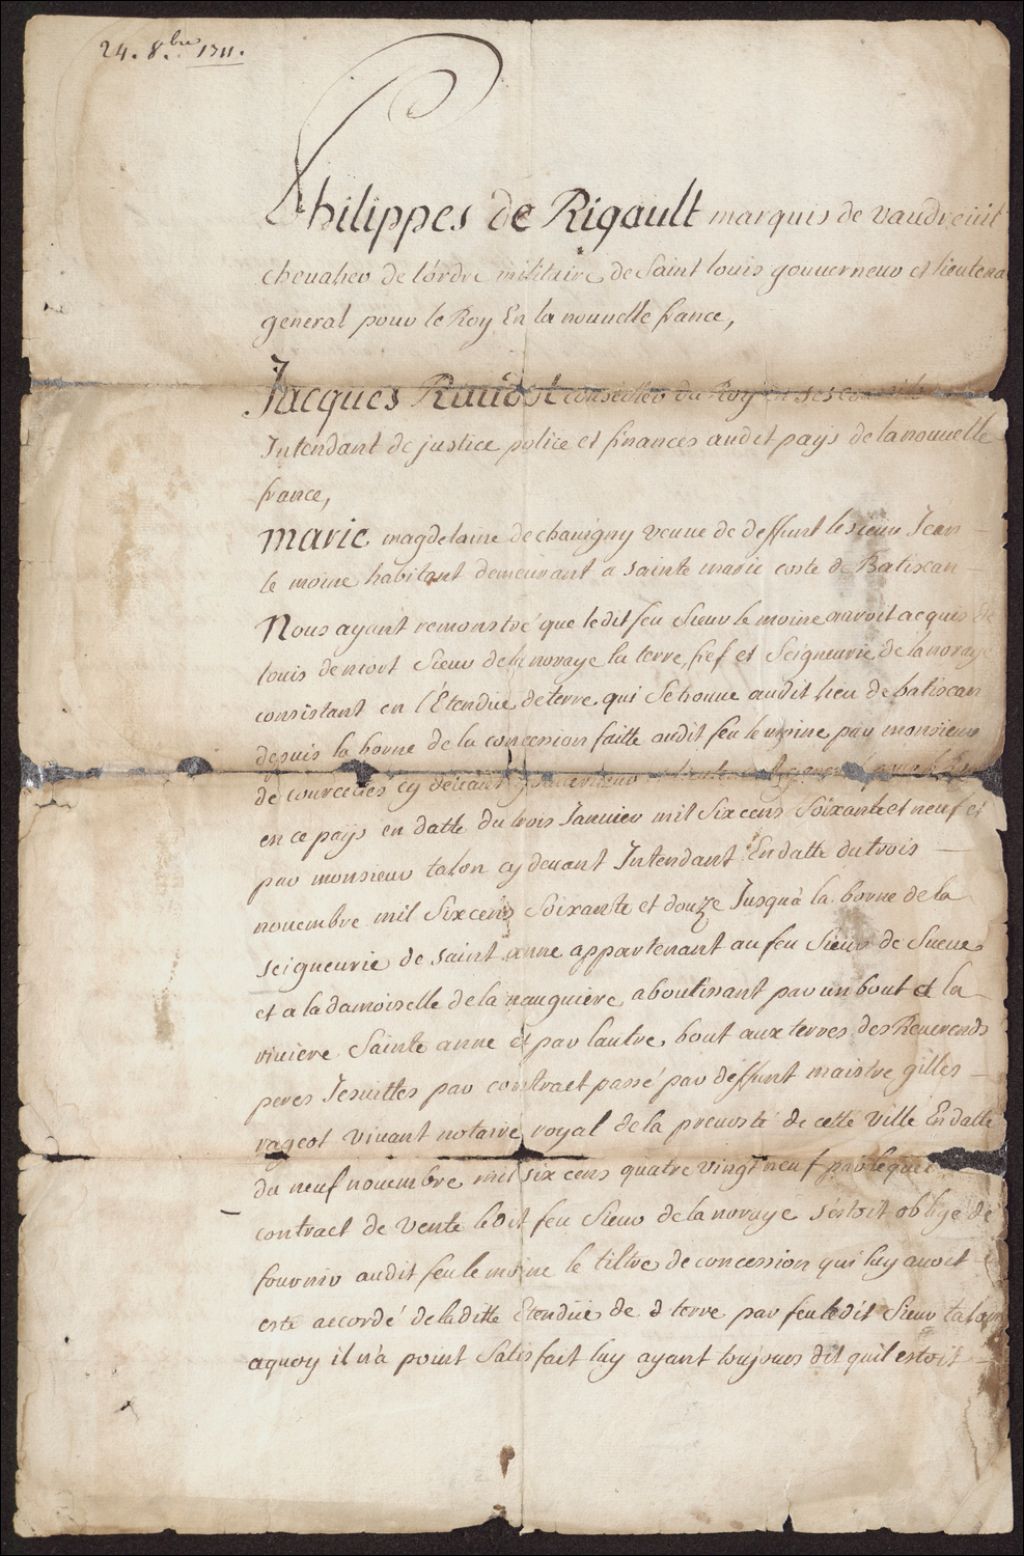 24. 8.bre 1711.
Philippes de Rigault marquis de vaudreüil
chevalier de l'ordre militaire de Saint louis gouverneur et lieutena
general pour le Roy En la nouvelle france,
Jacques Raudot conseiller du Roy en ses conseils
Intendant de justice police et finances audit pays de la nouvelle
france,
Marie magdelaine de chauigny veuue de deffunt le sieur Jean
le moine habitant demeurant a sainte marie coste de Batiscan
Nous ayant remonstré que ledit feu Sieur le moine auroit acquis de
louis de niort Sieur de la noraye la terre, fief et Seigneurie de la noraye
consistant en l'Etendüe de terre qui Se trouue audit lieu de batiscan
depuis la borne de la concession faitte audit feu le moine par monsieur
de courcelles cy deuant gouuerneur
en ce pays en datte du trois Januier mil Six cens Soixante et neuf et
par monsieur talon cy deuant Intendant En datte du trois
nouembre mil Six cens Soixante et douze Jusqu'à la borne de la
seigneurie de saint anne appartenant au feu Sieur de Sueue
et a la damoiselle de la nauguiere, aboutissant par un bout a la
riuiere Sainte anne et par lautre bout aux terres des Reuerends
peres Jesuittes par contract passé par deffunt maistre gilles
rageot viuant notaire royal de la preuosté de cette ville En datte
du neuf nouembre mil six cens quatre vingt neuf par lequel
contract de vente ledit feu Sieur de la noraye s'estoit obligé de
fournir audit feu le moine le tiltre de concession qui luy auoit
esté accordé de la ditte Etendüe de d terre par feu ledit Sieur talon
aquoy il n'a point Satisfait luy ayant toujours dit quil estoit